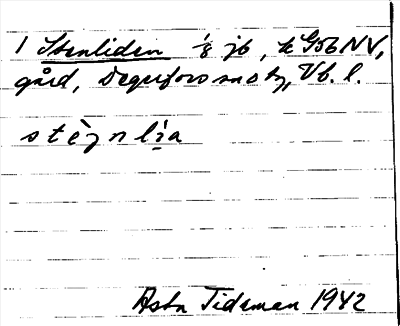 1 Stenliden 1/8 jb, k G5b NV,
gård, Degerfors sn o tg, Vb. l.
stèjnlia
Asta Tideman 1942